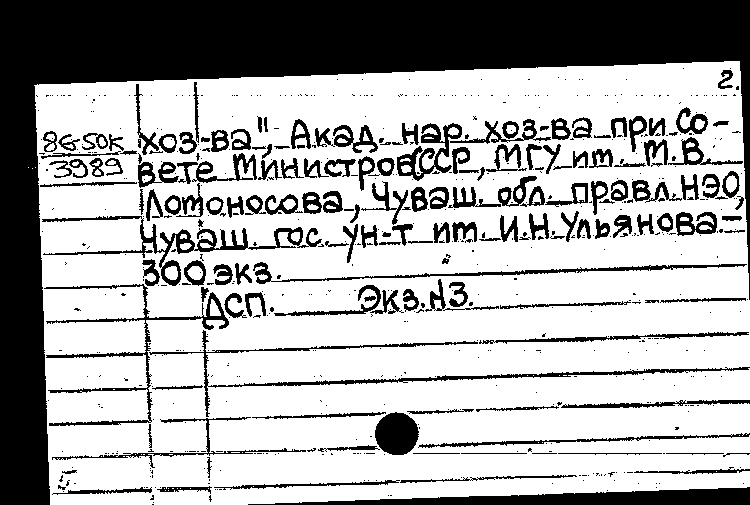 2.
86-50К хоз-ва", Акад. нар. хоз-ва при Со-
3989 вете Министров СССР, МГУ им. М.В.
Ломоносова, Чуваш. обл. правл. НЭО,
Чуваш. гос. ун-т им. И.Н. Ульянова-
300 экз.
ДСП. Экз. N3.